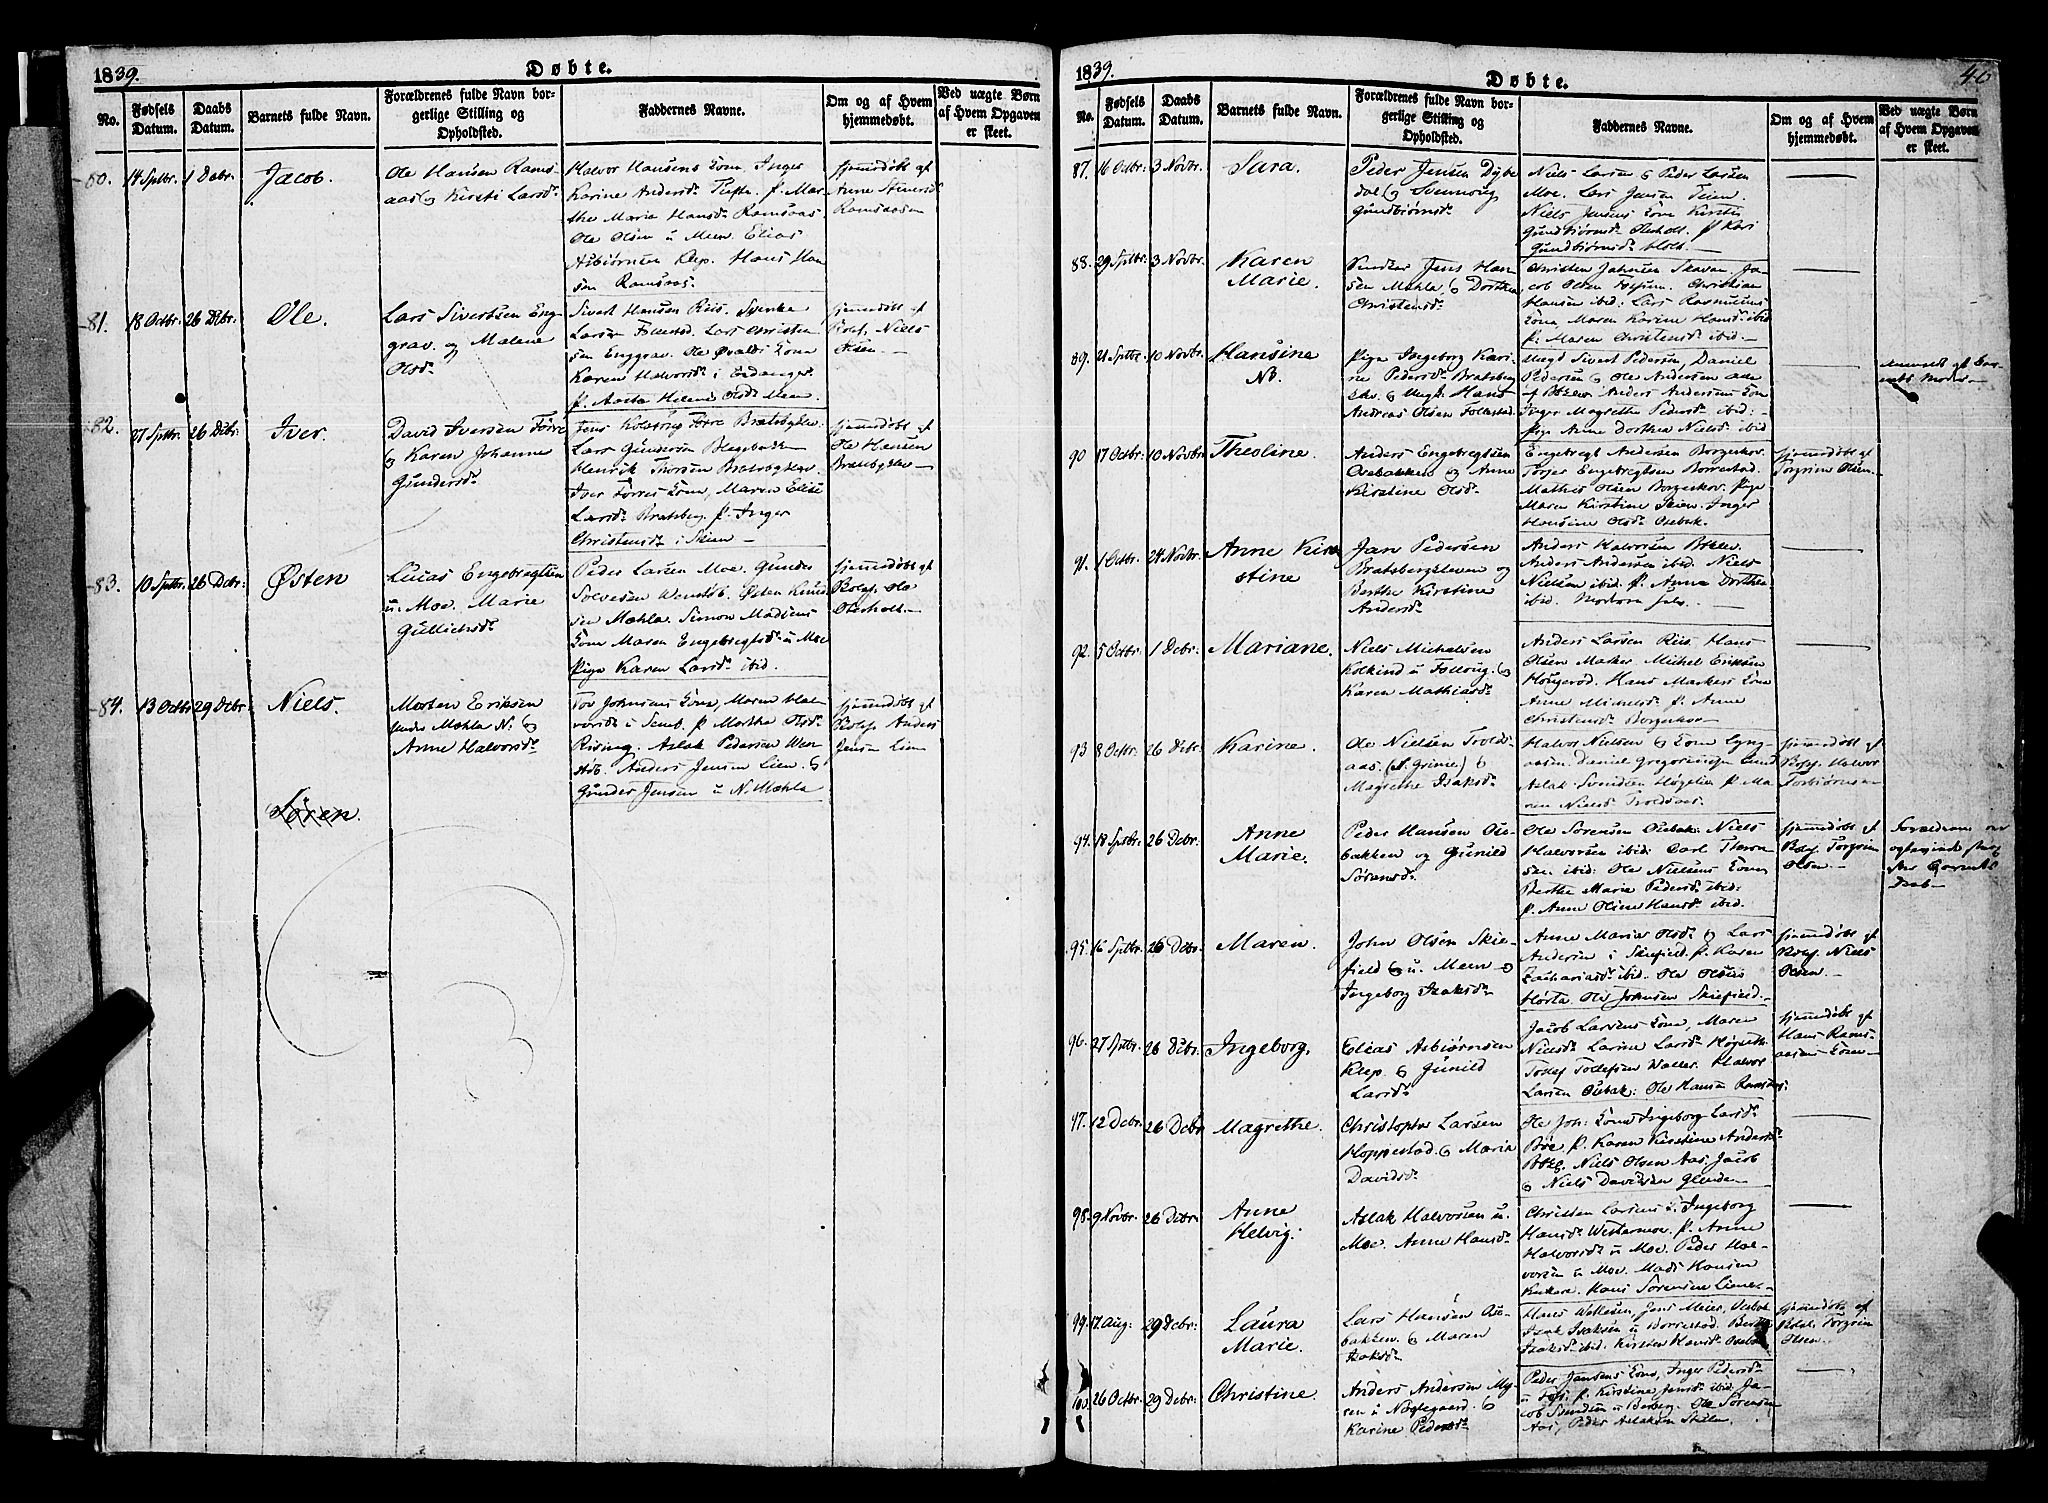 1839.
Døbte.
No.
Fødsels Datum.
Daabs Datum.
Barnets fulde Navn.
Forældrenes fulde Navn bor-
gerlige Stilling og
Opholdsted.
Faddernes Navne.
Om og af Hvem
hjemmedøbt.
Ved uægte Børn
af Hvem Opgaven
er skeet.
80. 14 Sptbr. 1 Debr. Jacob.
Ole Hansen Rams-
aas og Kirsti Larsd.
Halvor Hansens Kone, Inger
Karine Andersd. Tufte. P. Mar-
the Marie Hansd. Ramsaas
Ole Olsen u Meen. Elias
Asbiørnsen Klep. Hans Han
sen Ramsaas.
hjemmedøbt af
Anne
Ramsaasen
81. 18 Octbr. 26 Debr. Ole.
Lars Sivertsen Eng-
grav. og Malene
Olsd.
Sivert Hansen Riis.
Larsen Follestad. Lars Christen
sen Enggrav. Ole Kone
Karen Halvorsd. i
P. Helene Olsd. Meen.
hjemmedøbt af
Niels
Olsen.
82. 27 Sptbr. 26 Debr. Iver.
David Iversen Førre
og Karen Johanne
Gundersd.
Jens Førre Bratsbgklev.
Lars Gundersen
Henrik Thorsen Bratsbgklev.
Iver Førres Kone, Maren Elise
Larsd. Bratsberg. P. Inger
Christensd. i Skien
hjemmedøbt af
Ole Hansen
Bratsbgklev
83. 10 Sptbr. 26 Debr. Østen
Lucas Engebregtsen
u. Moe. Marie
Gullichsd.
Peder Larsen Moe. Gunder
Solvesen Wenstøb. Østen Knud
sen Mæhla. Simon Madsens
Kone Maren Engebregtsd. u Moe
Pige Karen Larsd. ibid.
hjemmedøbt af
Ole
Oterholt.
84. 13 Octbr. 29 Debr. Niels.
Morten Eriksen
Mæhla N. og
Anne Halvorsd.
Tov Johnsens Kone, Maren Hal-
vorsd. u P. Marthe Olsd.
Rising. Aslak Pedersen Wen-
støb. Anders Jensen Lien. og
Gunder Jensen u N. Mæhla
hjemmedøbt af
Anders
Jensen Lien
Søren
1839.
Døbte.
40
No.
Fødsels Datum.
Daabs Datum.
Barnets fulde Navn.
Forældrenes fulde Navn bor-
gerlige Stilling og
Opholdsted.
Faddernes Navne.
Om og af Hvem
hjemmedøbt.
Ved uægte Børn
af Hvem Opgaven
er skeet.
87. 16 Octbr. 3 Novbr. Sara.
Peder Jensen Dybe
dal og
Gundbiørnsd.
Niels Larsen og Peder Larsen
Moe. Lars Jensen Teien
Niels Jensens Kone Kirsti
Gundbiørnsd. Oterholt. P. Kari
Gundbiørnsd. Holt.
88. 29 Sptbr. 3 Novbr. Karen
Marie.
Jens Han
sen Mæhla. og Dorthea
Christensd.
Christen Johnsen Skavan. Ja-
cob Olsen Christian
Hansen ibid: Lars Rasmusens
Kone, Maren Karine Hansd. ibid
P. Maren Christensd. ibid.
89. 21 Sptbr. 10 Novbr. Hansine
NB.
Pige Ingeborg Kari-
ne Pedersd. Bratsberg
klv. og Ungk. Hans
Andreas Olsen Follestad.
Ungk Sivert Pedersen, Daniel
Pedersen og Ole Andersen alle
af Bklev. Anders Andersens Kone
Inger Magrethe Pedersd. ibid:
Pige Anne Dorthea Nielsd. ibid
Anmeldt af Bar-
nets Moder
90 17 Octbr. 10 Novbr. Theoline.
Anders Engebregtsen
Osebakken og Anne
Kirstine Olsd.
Engebregt Andersen Borgeskov.
Torger Engebregtsen Borrestad.
Mathis Olsen Borgeskov. Pige
Maren Kirstine Skien. Inger
Hansine Olsd. Osebak.
hjemmedøbt af
Torgrim Olsen.
91. 1 Octbr. 24 Novbr. Anne Kir-
stine
Jan Pedersen
Bratsbergkleven og
Berthe Kirstine
Andersd.
Anders Halvorsen Bklev.
Anders Andersen ibid. Niels
Nielsen ibid. P. Anne Dorthea
ibid.
92. 5 Octbr. 1 Debr. Mariane.
Niels Michelsen
u og
Karen Mathiasd.
Anders Larsen Riis. Hans
Olsen Michel Eriksen
Hans Kone
Anne Michelsd. P. Anne
Christensd. Borgeskov
93 8 Octbr. 26 Debr. Karine.
Ole Nielsen Trolds-
aas. (S. Grime.) og
Magrethe Isaksd.
Halvor Nielsen og Kone Lyng-
aasen. Daniel Gregoriussen Lund
Aslak P. Ma
ren Nielsd. Troldsaas.
hjemmedøbt af
Halvor
Torbiørnsen
94. 18 Sptbr. 26 Debr. Anne
Marie.
Peder Hansen Ose-
bakken og Gunild
Sørensd.
Ole Sørensen Osebak. Niels
Halvorsen ibid: Carl Thorn
sen. ibid: Ole Nielsens Kone
Berthe Marie Pedersd. ibid:
P. Anne Olene Hansd. ibid.
hjemmedøbt af
Torgrim
Olsen
Forældrene
95. 16 Sptbr. 26 Debr. Maren.
John Olsen Skie-
field u. Meen og
Ingeborg Isaksd.
Anne Marie Olsd. og Lars
Andersen i Skiefield. P. Karen
Zachariasd. ibid. Ole Olsen
Hørta. Ole Johnsen Skiefield.
hjemmedøbt af
Niels
Olsen.
96. 27 Sptbr. 26 Debr. Ingeborg.
Elias Asbiørnsen
Klep. og Gunild
Larsd.
Jacob Larsens Kone, Maren
Nielsd. Larine Larsd.
Tollef Tollefsen Halvor
Larsen Osebak: Ole Hansen Ramsaas:
hjemmedøbt af
Hans Rams-
aasens Kone
97. 12 Debr. 26 Debr. Magrethe.
Christopher Larsen
Hoppestad. og Maria
Davidsd.
Ole Joh: Kone Ingeborg Larsd.
Bøe. P. Karen Kirstine Andersd.
Niels Olsen Aas. Jacob
og Niels Davidsen Glende
98. 9 Novbr. 26 Debr. Anne
Helvig.
Aslak Halvorsen u.
Moe. Anne Hansd.
Christen Larsens u. Ingeborg
Hansd. Westermoe. P. Anne
Halvorsd. u Moe. Peder Hal-
vorsen u Moe. Mads Hansen
Hans Sørensen
99. 17 Aug: 29 Debr: Laura
Marie.
Lars Hansen Ose-
bakken. og Maren
Isaksd.
Hans Jens Meier, Osebak
Isak Isaksen u Borrestad. Berthe
Isaksd. ibid. Kirsten Hansd. Osebak
hjemmedøbt af
Torgrim
Olsen.
100. 26 Octbr. 29 Debr: Christine.
Anders Andersen My-
ren u Næglegaard. og
Karine Pedersd.
Peder Jansens Kone, Inger Pedersd.
P. Kirstine Jensd. ibid. Ja-
cob u Berberg. Ole Sørensen
Aas, Peder Aslaksen